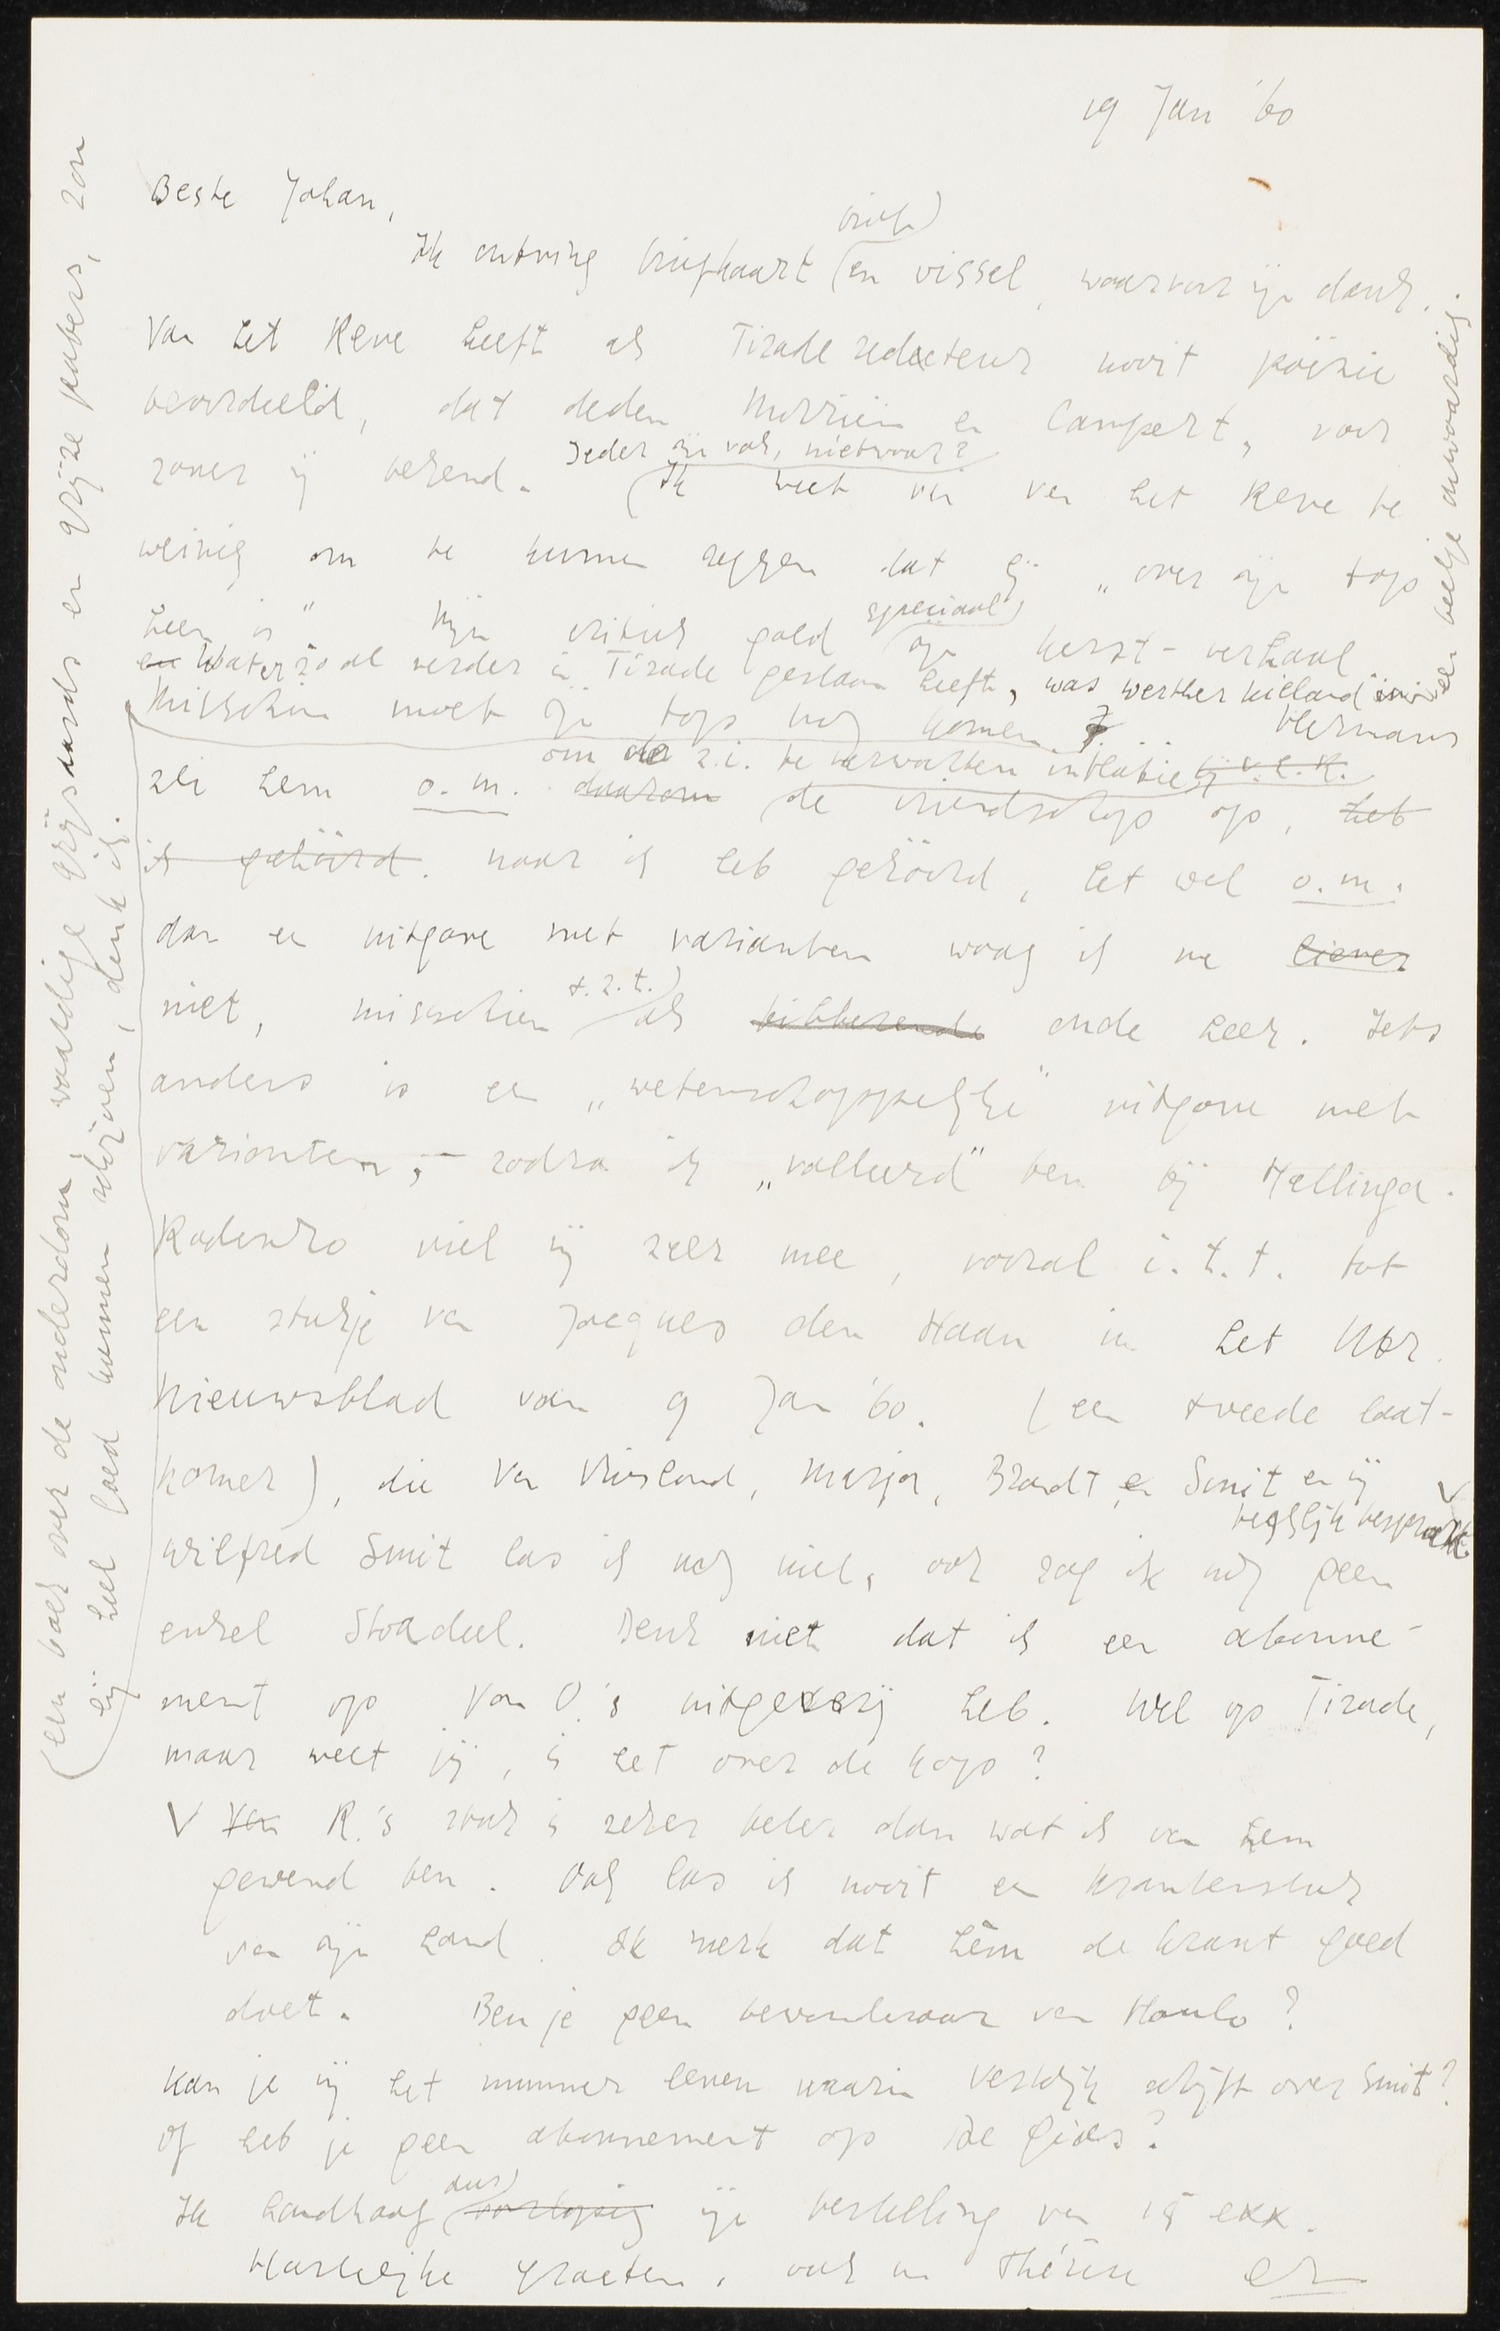 19 Jan '60
Beste Johan,
Ik ontving briefkaart (en brief) wissel, waarvoor mijn dank.
Van het Reve heeft als Tirade redacteur nooit poëzie
beoordeeld, dat deden Morriën en Campert, voor
zover mij bekend. Ieder zijn vak, nietwaar? Ik weet nu van het Reve te
weinig om te kunnen zeggen dat hij „over zijn top
heen is" Mijn kritiek gold speciaal zijn kerst-verhaal
en Wat er zoal verder in Tirade gestaan heeft, was
Misschien moet zijn top nog komen. Hermans
zei hem o.m. daarom om de z.i. te verwachten de vriendschap op, heb
ik gehoord. naar ik heb gehoord, let wel o.m.
dan een uitgave met varianten waag ik me liever
niet, misschien t.z.t. als bibberende oude heer. Iets
anders is een „wetenschappelijke" uitgave met
varianten, – zodra ik „volleerd" ben bij Hellinga.
Rodenko viel mij zeer mee, vooral i.t.t. tot
een stukje van Jacques den Haan in het Utr.
Nieuwsblad van 9 Jan '60. (een tweede laat-
komer), die Van Vriesland, Marja, Brandt en Smit en mij
tegelijk besprak. V
Wilfred Smit las ik nog niet, ook zag ik nog geen
enkel Stoadeel. Denk niet dat ik een abonne-
ment op Van O.'s uitgeverij heb. Wel op Tirade,
maar weet jij, is het over de kop?
V Van R.'s stuk is zeker beter dan wat ik van hem
gewend ben. Ook las ik nooit een krantenstuk
van zijn hand. Ik merk dat hèm de krant goed
doet. Ben je geen bewonderaar van Hanlo?
Kan je mij het nummer lenen waarin Vestdijk schrijft over Smit?
Of heb je geen abonnement op De Gids?
Ik handhaaf dus voorlopig mijn bestelling van 15 exx.
Hartelijke groeten, ook van Thérèse
(een boek over de ouderdom, waardige grijsaards en grijze pubers, zou
hij heel goed kunnen schrijven, denk ik.
een beetje onwaardig.